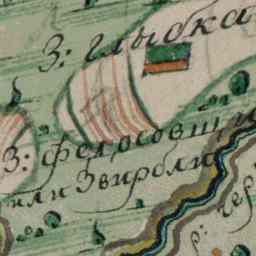 З: глыбка
З: федосовщи
или Звироли
р: чер